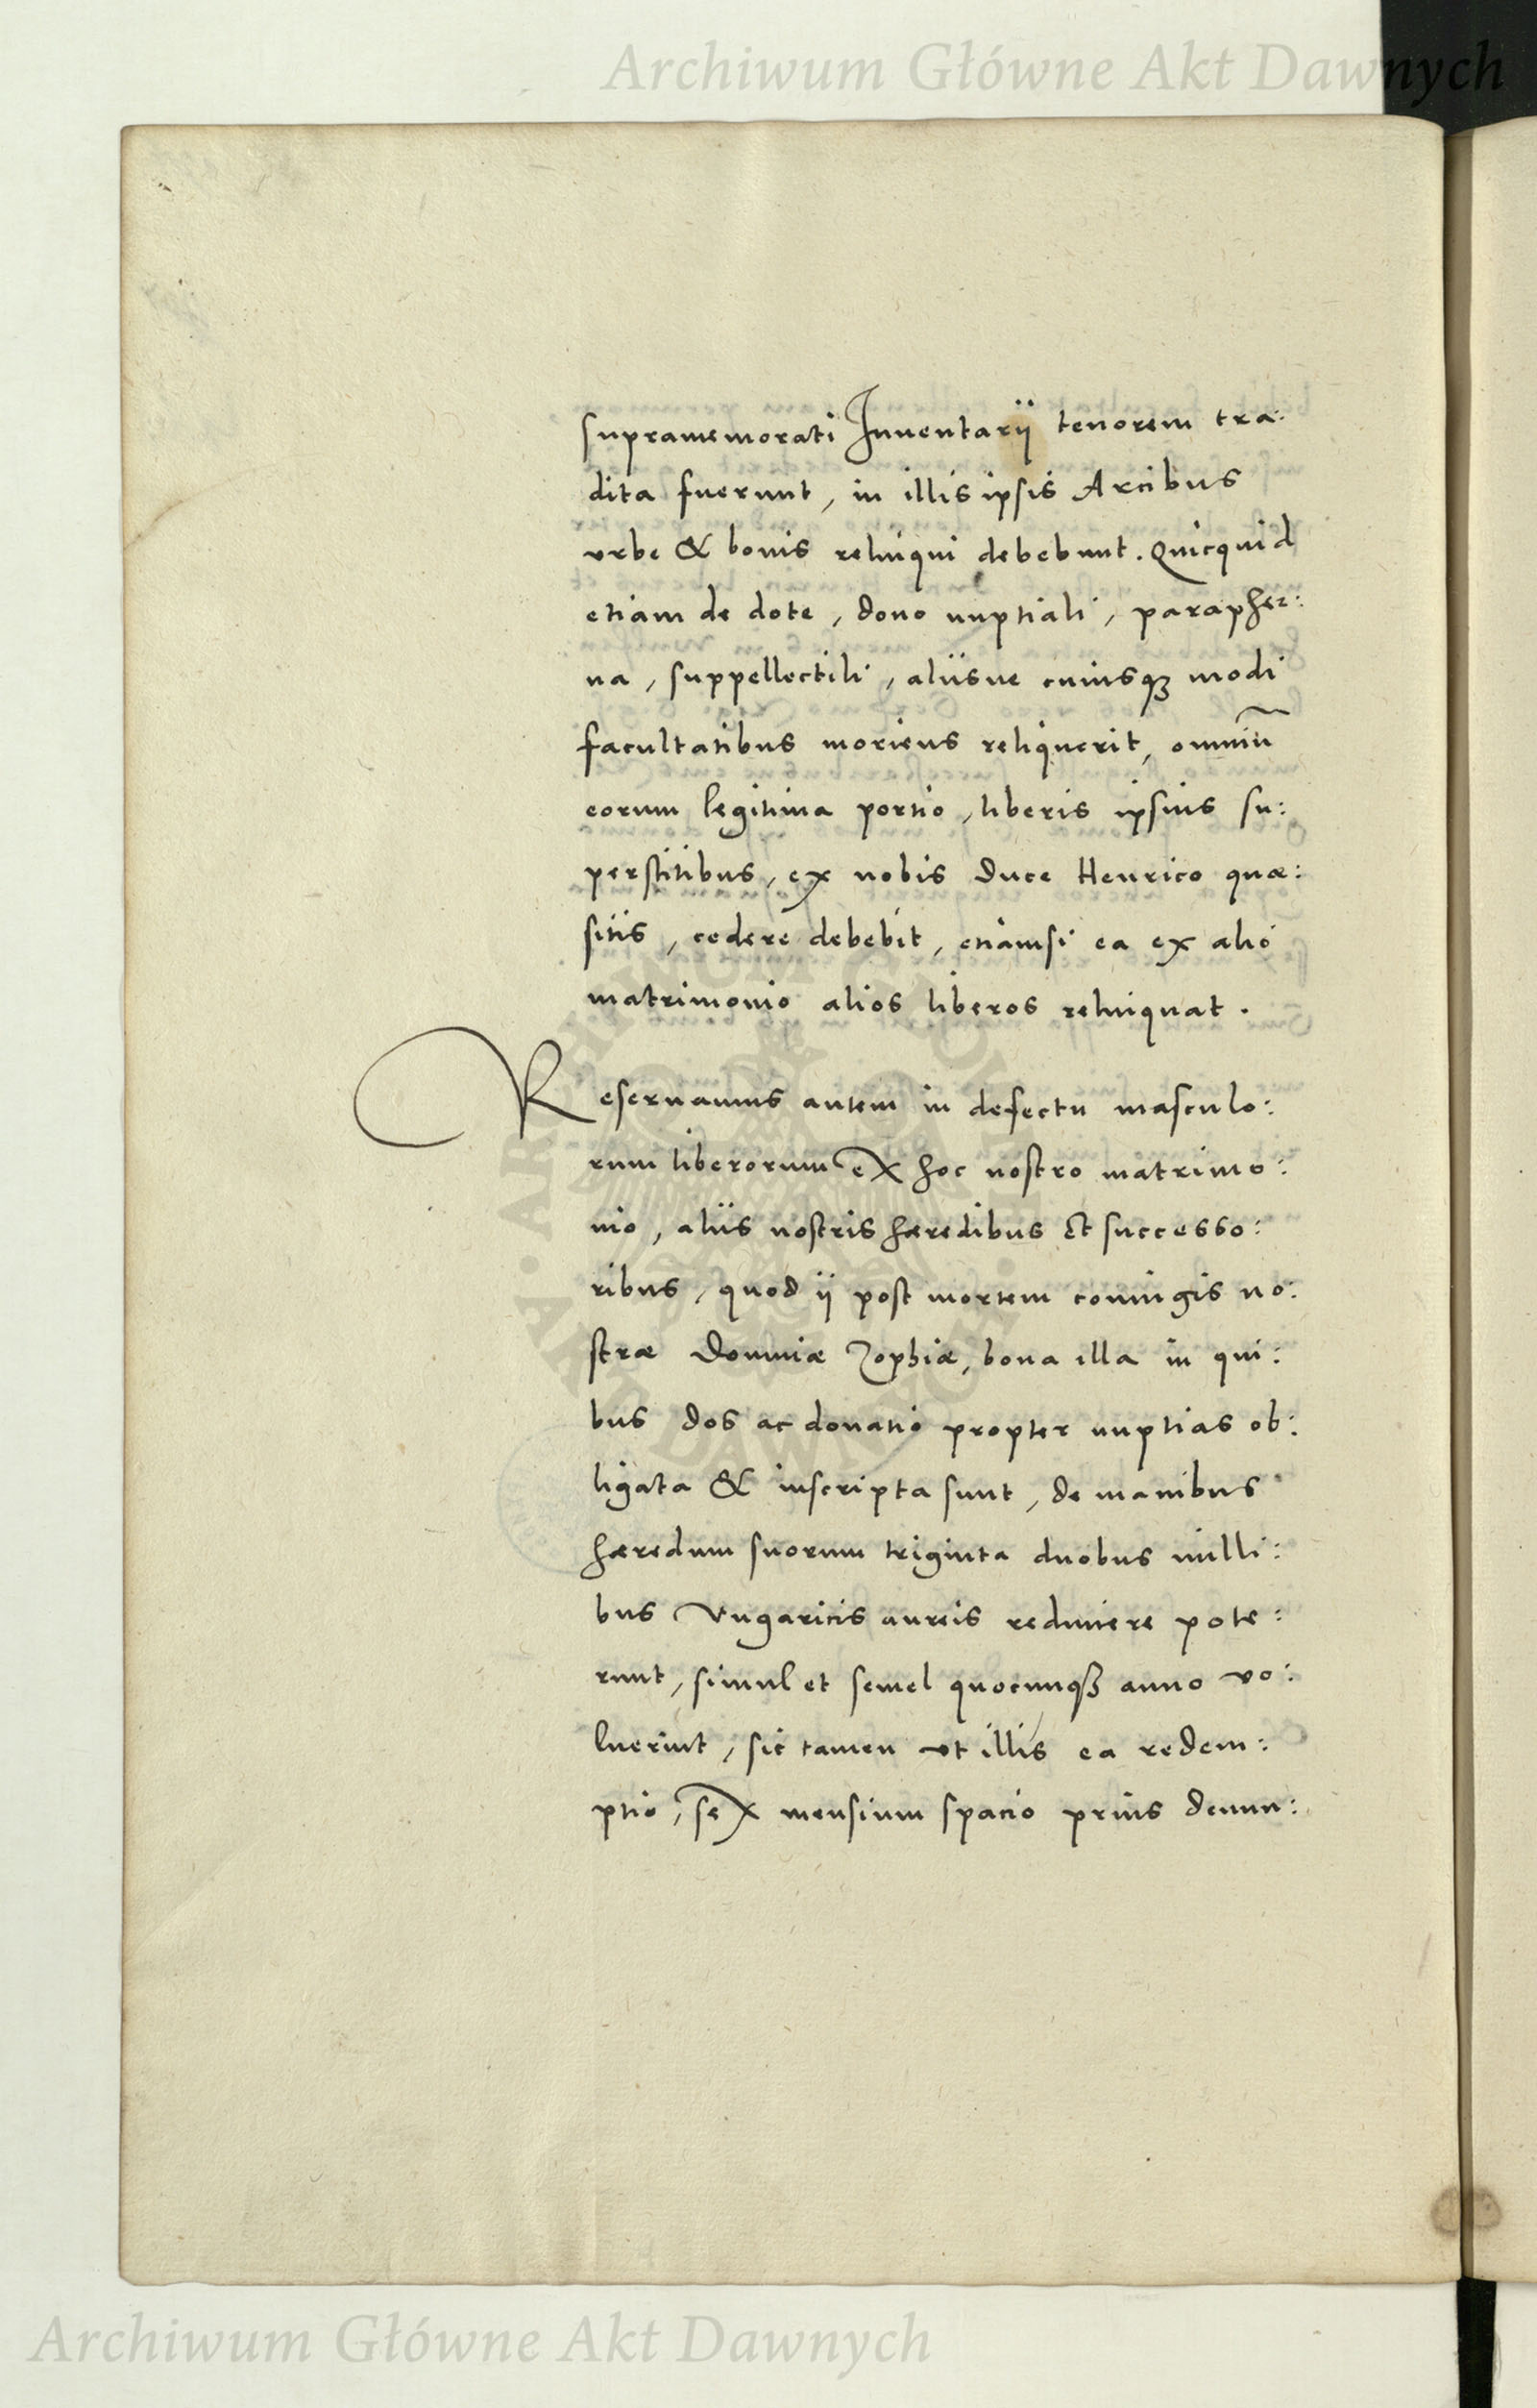 Archiwum Główne Akt Dawnych
supramemorati Inuentarij tenorem tra:
dita fuerunt, in illis ipsis Arcibus
vrbe & bonis relinqui debebunt. Quicquid
etiam de dote, dono nuptiali, parapher:
na, suppellectili, aliisue cuiusqȝ modi
facultatibus moriens reliquerit, omniū
eorum legitima portio, liberis ipsius su:
perstitibus, ex nobis Duce Henrico quæ:
sitis, cedere debebit, etiamsi ea ex alio
matrimonio alios liberos relinquat.
Reseruamus autem in defectu masculo:
rum liberorum ex hoc nostro matrimo:
nio, aliis nostris hæredibus Et successo:
ribus, quod ij post mortem coniugis no:
stræ Dominæ Zophiæ, bona illa in qui:
bus dos ac donatio propter nuptias ob:
ligata & inscripta sunt, de manibus
hæredum suorum triginta duobus milli:
bus Vngaricis aureis redimere pote:
runt, simul et semel quocunqȝ anno vo:
luerint, sic tamen vt illis ea redem:
ptio, sex mensium spacio prius denun:
Archiwum Główne Akt Dawnych